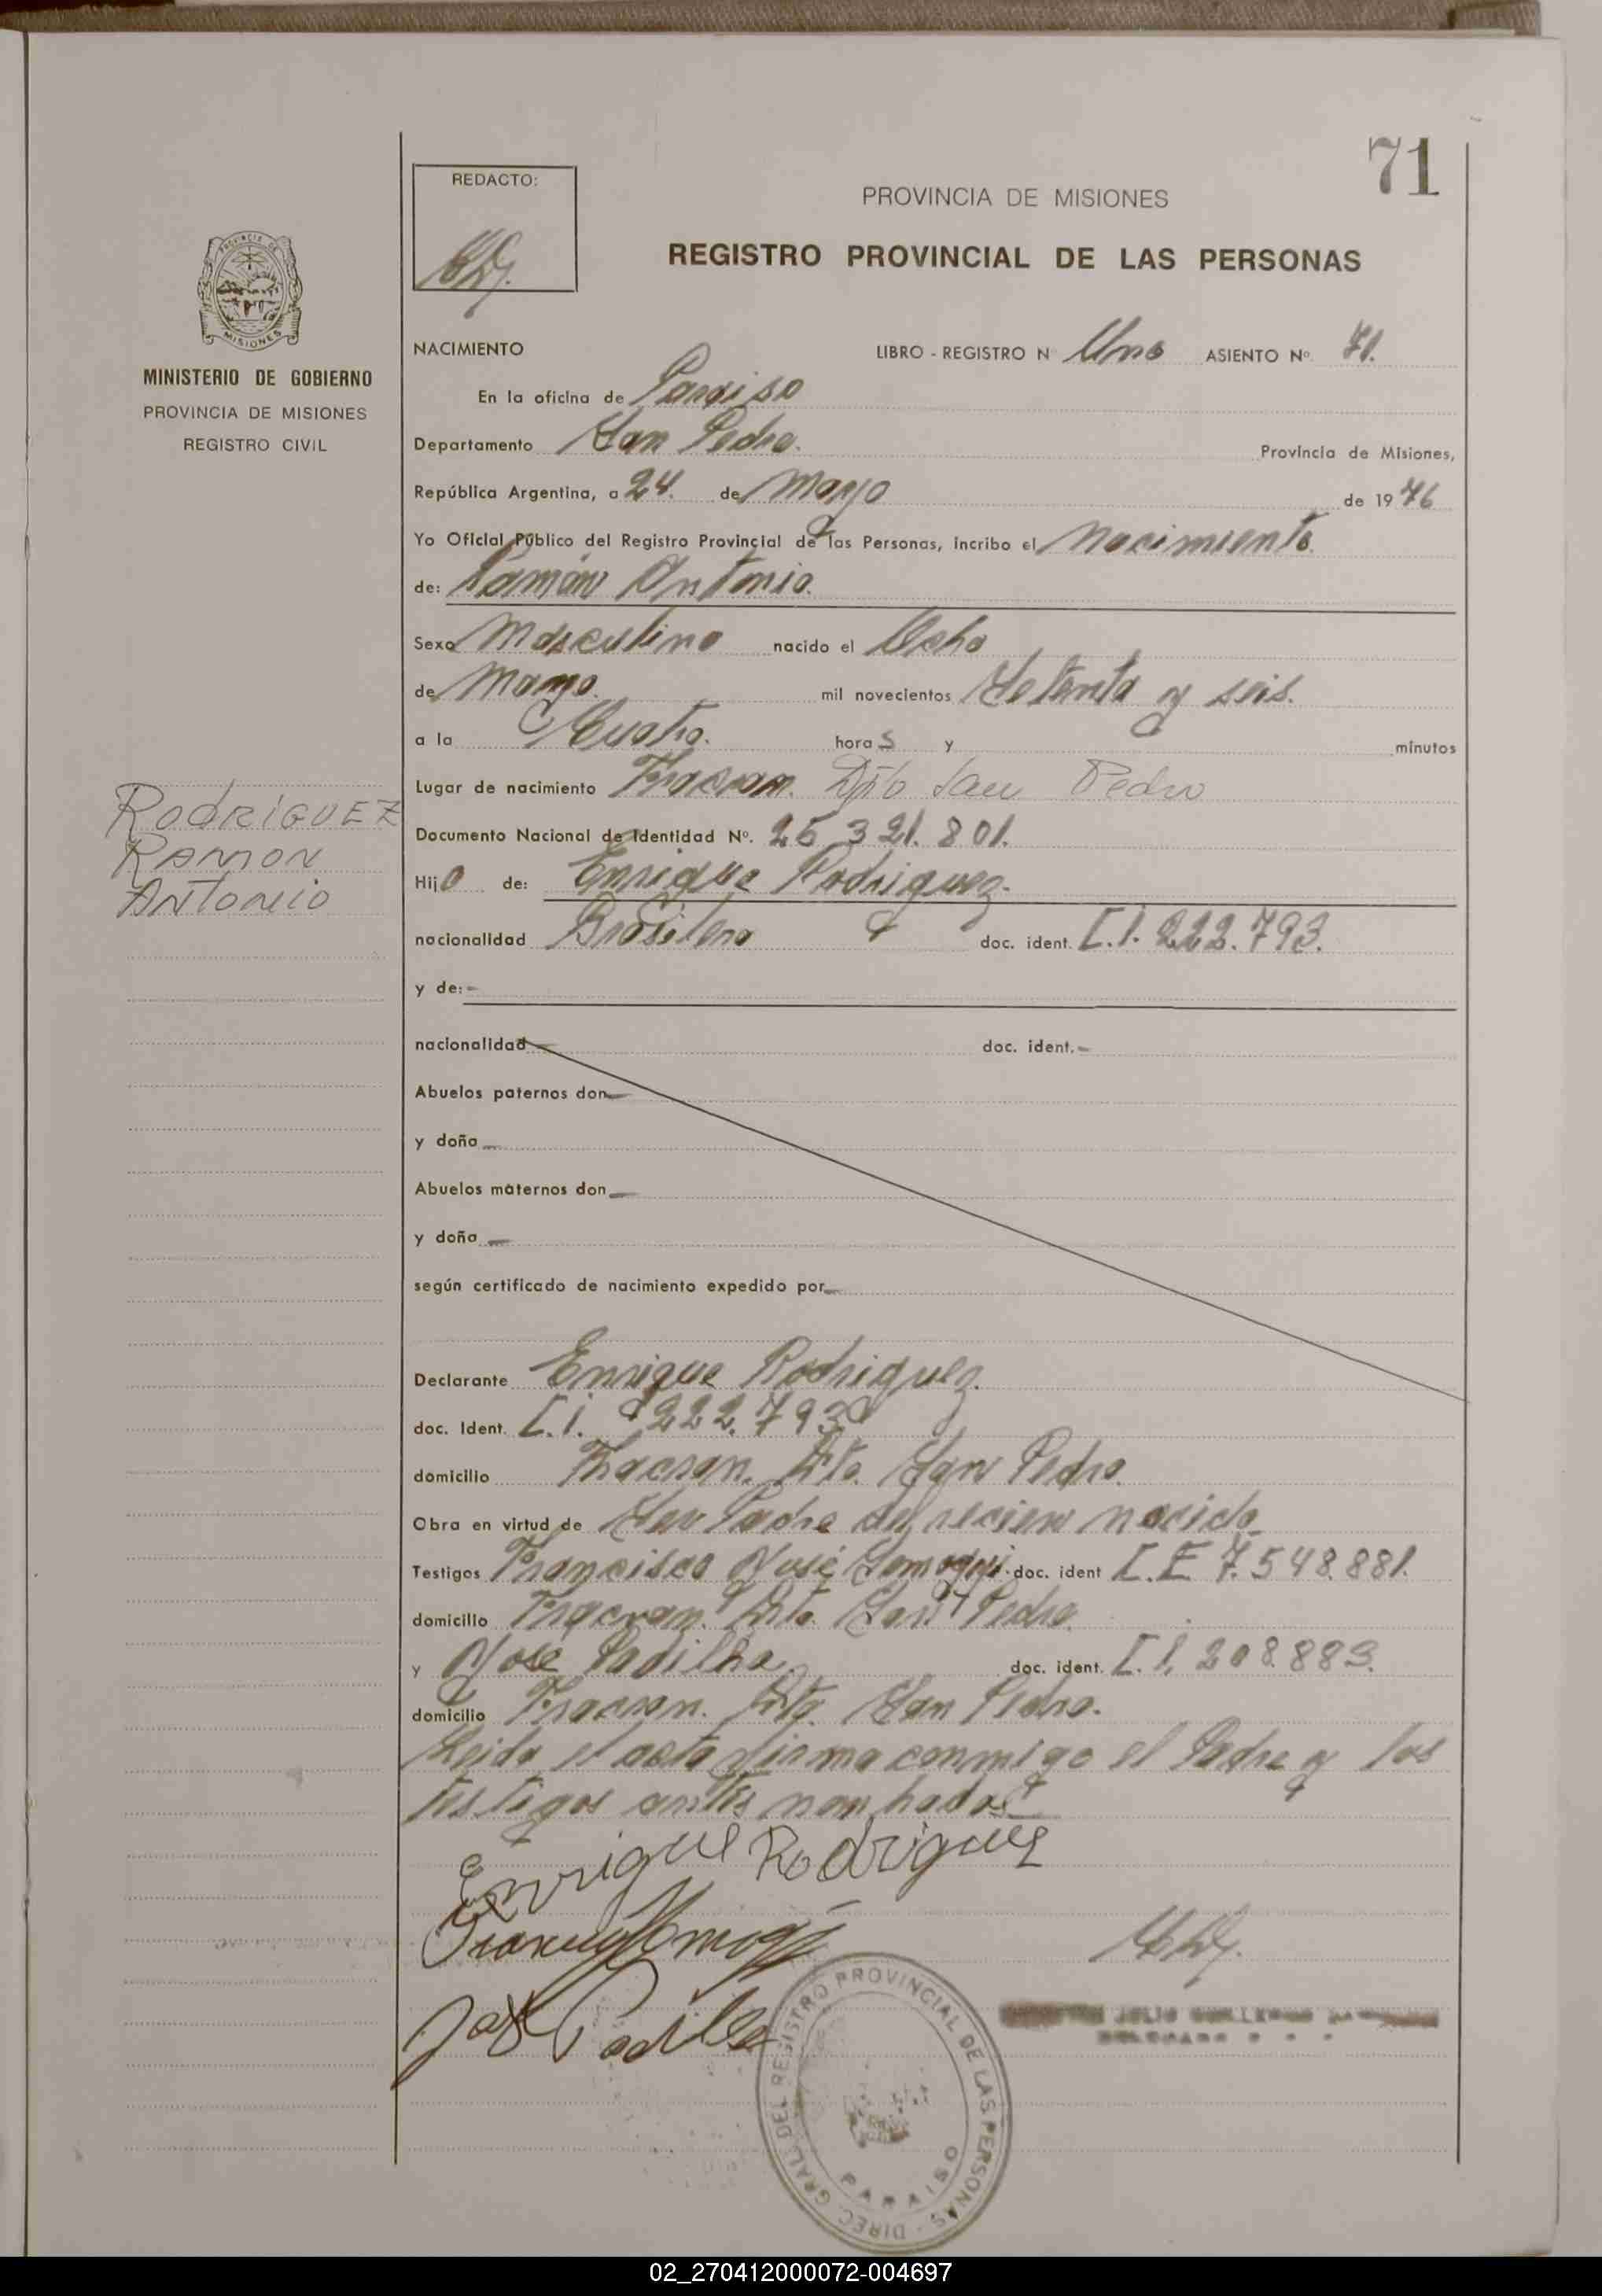 71
REDACTO:
PROVINCIA DE MISIONES
REGISTRO PROVINCIAL DE LAS PERSONAS
PROVINCIA DE
MISIONES
MINISTERIO DE GOBIERNO
PROVINCIA DE MISIONES
REGISTRO CIVIL
NACIMIENTO LIBRO - REGISTRO N Uno ASIENTO Nº. 71.
En la oficina de Paraiso
Departamento San Pedro. Provincia de Misiones,
República Argentina, a 24. de Mayo de 1976
Yo Oficial Público del Registro Provincial de las Personas, incribo el Nacimiento.
de: Ramón Antonio.
Sexo Masculino nacido el Ocho
de Mayo. mil novecientos Setenta y seis.
a la Cuatro. horas y minutos
Lugar de nacimiento Fracran. Dpto San Pedro
RODRIGUEZ
RAMON
ANTONIO
Documento Nacional de Identidad Nº. 25 321.801.
Hijo de: Enrique Rodriguez.
nacionalidad Brasilera doc. ident. C.I. 222.793.
y de:
nacionalidad doc. ident.
Abuelos paternos don
y doña
Abuelos maternos don
y doña
según certificado de nacimiento expedido por
Declarante Enrique Rodriguez.
doc. Ident. C.I. 222.793
domicilio Fracran. Dto. San Pedro.
Obra en virtud de Ser Padre del recien nacido
Testigos Francisco José doc. ident C.E 7.548.881.
domicilio Fracran. Dto. San Pedro.
y José Padilha doc. ident. C.I. 208.883.
domicilio Fracran. Dto. San Pedro.
Leida el acta firma conmigo el Padre y los
testigos antes nombados
Enrique Rodriguez
José Padilla
JULIO GUILLERMO
DIREC. GRAL. DEL REGISTRO PROVINCIAL DE LAS PERSONAS
PARAISO
02_270412000072-004697